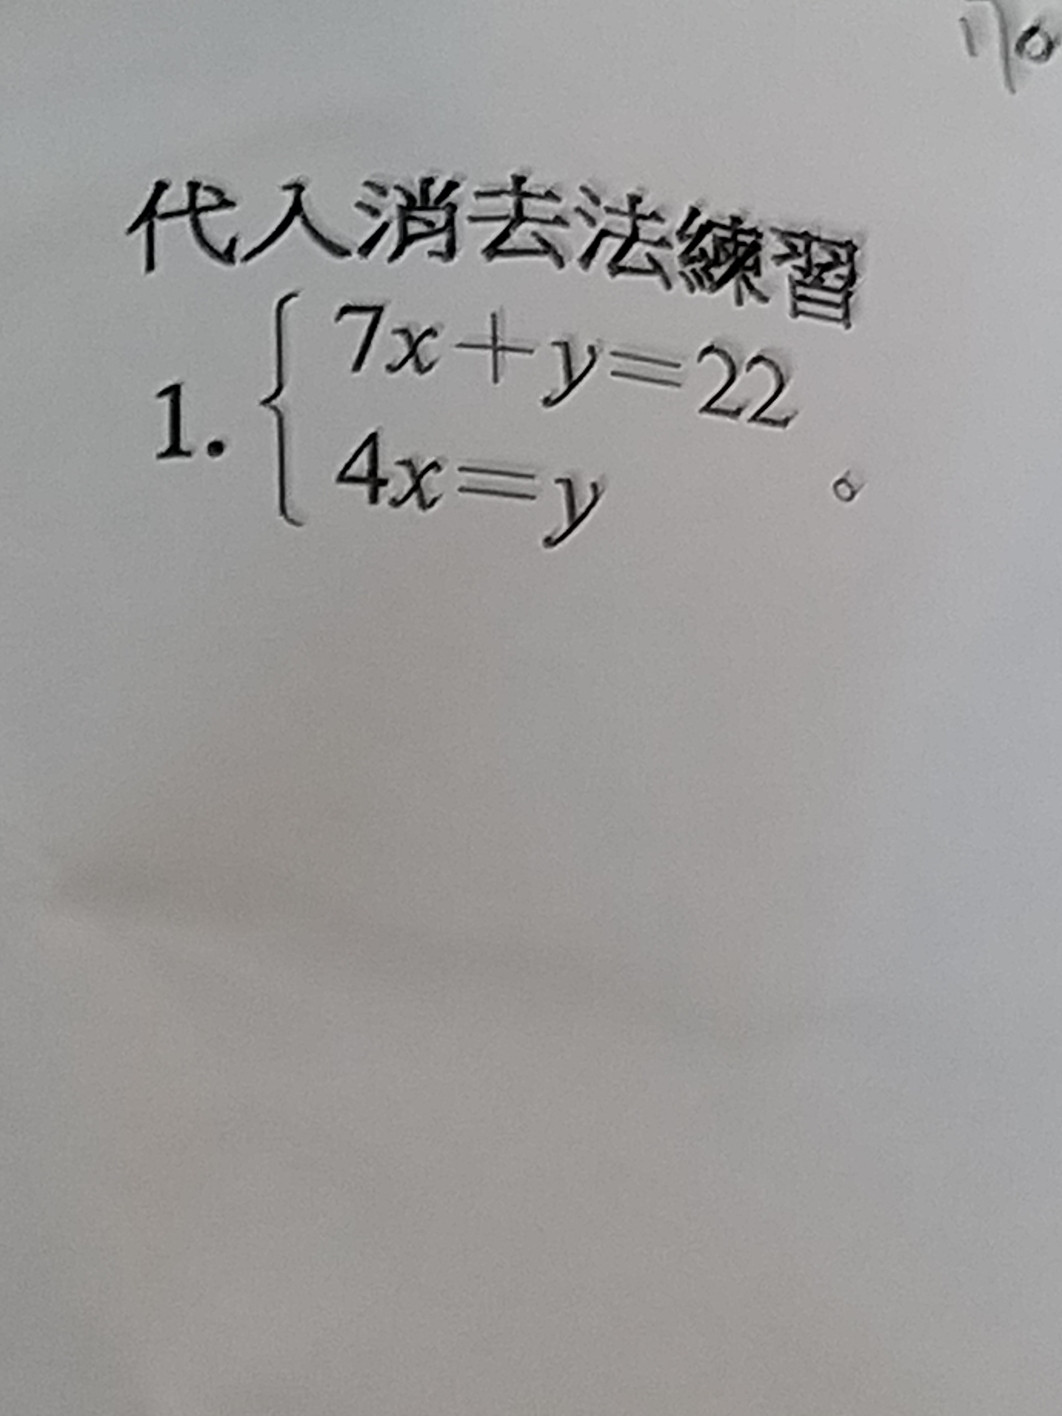 代入消去法練習
1. { 7x+y=22
4x=y 。